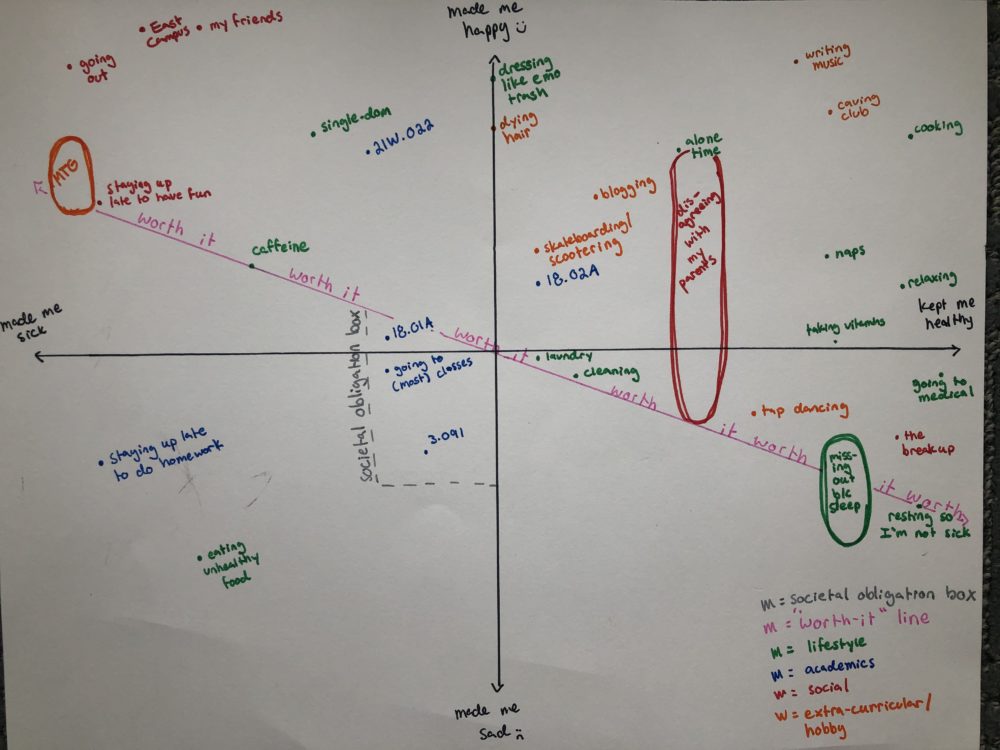 made me
happy :)
• East
campus
• my friends
• going
out
• dressing
like emo
trash
• writing
music
• single-dom
• 21W.022
• dying
hair
• caving
club
• cooking
• alone
time
MTG
• staying up
late to have fun
• blogging
dis-
agreeing
with
my
parents
worth it
caffeine
• skateboarding/
scootering
• 18.02A
• naps
• relaxing
worth it
made me
sick
kept me
healthy
societal obligation box
• 18.01A
worth it
taking vitamins
• going to
(most) classes
• laundry
• cleaning
going to
medical
worth
it worth
• tap dancing
• 3.091
• the
breakup
• staying up late
to do homework
miss-
ing
out
b/c
sleep
it worth
resting so
I'm not sick
• eating
unhealthy
food
m = societal obligation box
m = "worth-it" line
m = lifestyle
m = academics
m = social
w = extra-curricular/
hobby
made me
sad :(